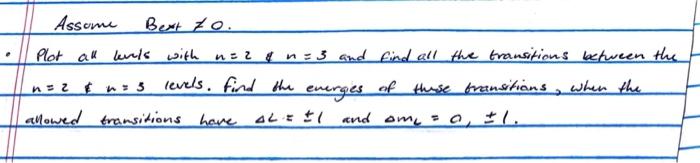 Assume Bext ≠ 0.
• Plot all levels with n = 2 & n = 3 and find all the transitions between the
n = 2 & n = 3 levels. Find the energies of these transitions, when the
allowed transitions have ΔL = ±1 and Δm_L = 0, ±1.